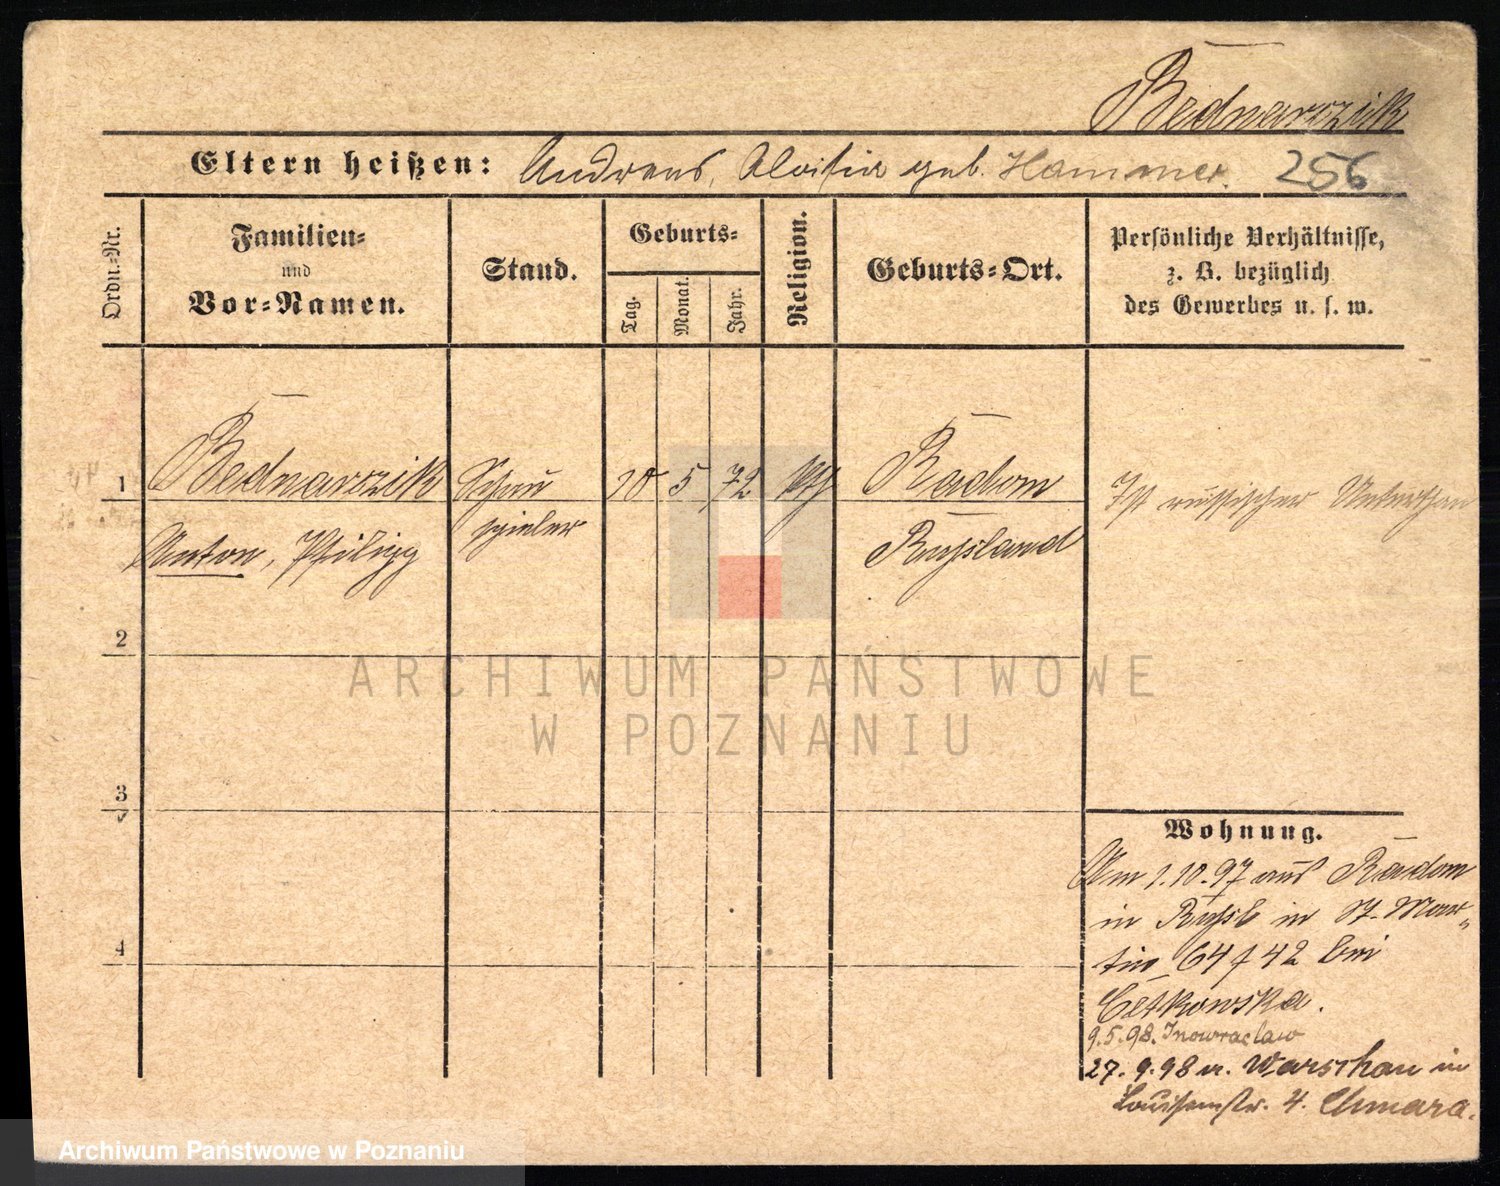 Bednarczik
Eltern heißen: Andreas, Aloisia geb. Hammer. 256
Ordn.-Nr.
Familien-
und
Vor-Namen.
Stand.
Geburts-
Tag.
Monat.
Jahr.
Religion.
Geburts-Ort.
Persönliche Verhältnisse,
z. B. bezüglich
des Gewerbes u. s. w.
1 Bednarczik Schau 10 5 72 kth Radom Ist russischer Unterthan
Anton, Philipp spieler Rußland
2
3
4
Wohnung.
Am 1.10.97 aus Radom
in Rußl in St. Mar-
tin 64/42 bei
Cetkowska.
9.5.98. Inowraclaw
27.9.98 v. Warschau in
Louisenstr. 4. Chmara.
ARCHIWUM PAŃSTWOWE
W POZNANIU
Archiwum Państwowe w Poznaniu